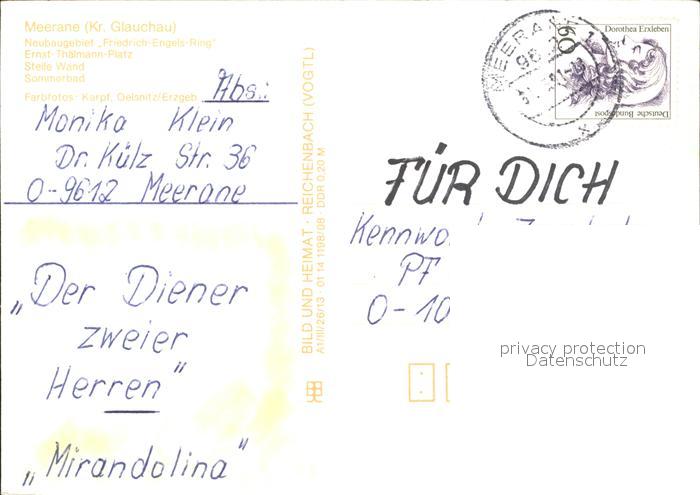 Meerane (Kr. Glauchau)
Neubaugebiet „Friedrich-Engels-Ring"
Ernst-Thälmann-Platz
Steile Wand
Sommerbad
Farbfotos: Karpf, Oelsnitz/Erzgeb.
Abs.:
Monika Klein
Dr. Külz Str. 36
O-9612 Meerane
„Der Diener
zweier
Herren"
„Mirandolina"
BILD UND HEIMAT · REICHENBACH (VOGTL)
A1/III/26/13 · 01 14 1198/08 · DDR 0,20 M
MEERANE 1
60
Dorothea Erxleben
Deutsche Bundespost
FÜR DICH
PF
O-10
privacy protection
Datenschutz